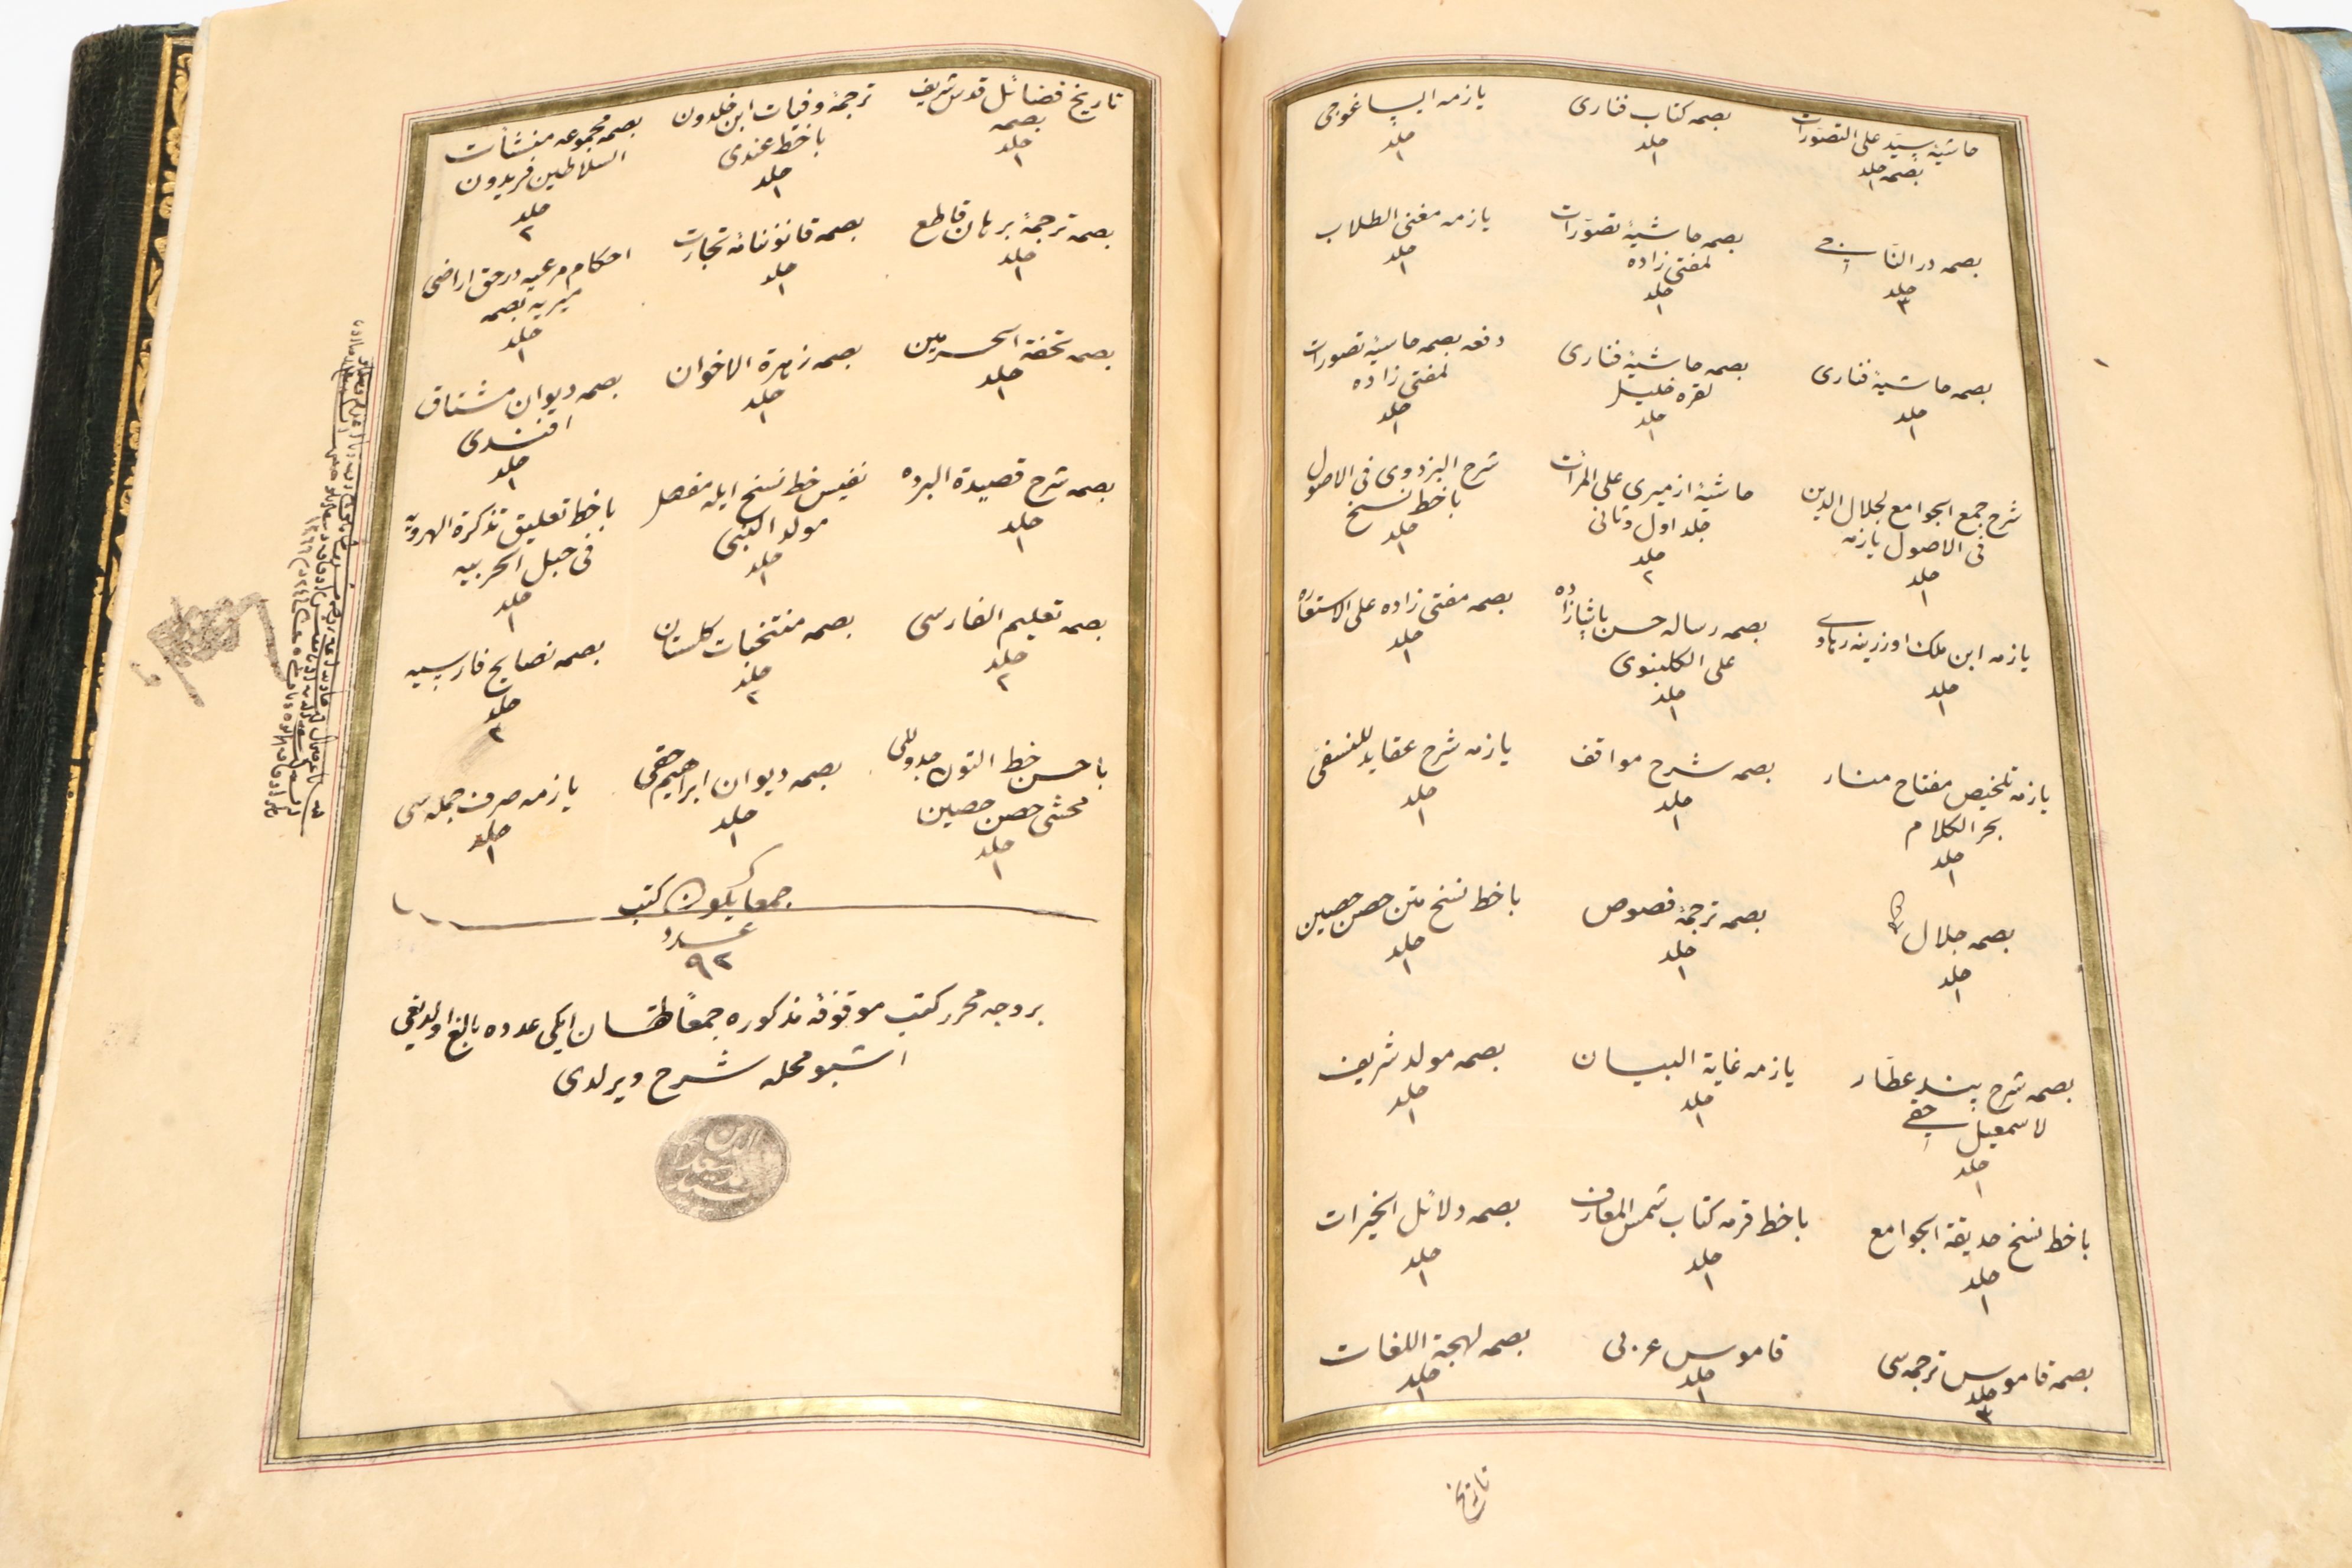 حاشیۀ سید علی التصورات
بصمه جلد ١
بصمه كتاب فناری
جلد ١
یازمه ایساغوجی
جلد ١
بصمه در الناجی
جلد ٣
بصمه حاشیۀ تصورات
لمفتی زاده
جلد ١
یازمه مغنی الطلاب
جلد ١
بصمه حاشیۀ فناری
جلد ١
بصمه حاشیۀ فناری
لقره خلیل
جلد ١
دفعه بصمه حاشیۀ تصورات
لمفتی زاده
جلد ١
شرح جمع الجوامع لجلال الدین
فی الاصول یازمه
جلد ١
حاشیۀ ازمیری علی المرأت
جلد اول وثانی
جلد ٢
شرح البزدوی فی الاصول
با خط نسخ
جلد ١
یازمه ابن ملك اوزرینه رهاوی
جلد ١
بصمه رساله حسن پاشازاده
علی الكلنبوی
جلد ١
بصمه مفتی زاده علی الاستعاره
جلد ١
یازمه تلخیص مفتاح منار
بحر الكلام
جلد ١
بصمه شرح مواقف
جلد ١
یازمه شرح عقاید للنسفی
جلد ١
بصمه جلال
جلد ١
بصمه ترجمۀ فصوص
جلد ١
با خط نسخ متن حصن حصین
جلد ١
بصمه شرح پند عطار
لاسمعیل حقی
جلد ١
یازمه غایة البیان
جلد ١
بصمه مولد شریف
جلد ١
با خط نسخ حدیقة الجوامع
جلد ١
با خط قرمه كتاب شمس المعارف
جلد ١
بصمه دلائل الخیرات
جلد ١
بصمه قاموس ترجمه سی
جلد ٣
قاموس عربی
جلد ١
بصمه لهجة اللغات
جلد ١
تاریخ
تاریخ فضائل قدس شریف
بصمه
جلد ١
ترجمۀ وفیات ابن خلدون
با خط عندی
جلد ١
بصمه مجموعه منشأت
السلاطین فریدون
جلد ٢
بصمه ترجمۀ برهان قاطع
جلد ١
بصمه قانوننامۀ تجارت
جلد ١
احكام مرعیه در حق اراضی
میریه بصمه
جلد ١
بصمه تحفة الحرمین
جلد ١
بصمه زهرة الاخوان
جلد ١
بصمه دیوان مشتاق
افندی
جلد ١
بصمه شرح قصیدة البرده
جلد ١
نفیس خط نسخ ایله مفصل
مولد النبی
جلد ١
با خط تعلیق تذكرة الهرویه
فی حیل الحربیه
جلد ١
بصمه تعلیم الفارسی
جلد ٢
بصمه منتخبات كلستان
جلد ٢
بصمه نصایح فارسیه
جلد ٢
با حسن خط التون جدوللی
محشی حصن حصین
جلد ١
بصمه دیوان ابراهیم حقی
جلد ١
یازمه صرف جمله سی
جلد ١
جمعا یكون كتب
عدد
٩٢
بر وجه محرر كتب موقوفۀ مذكوره جمعاً طقسان ایكی عدده بالغ اولدیغی
اشبو محله شرح ویرلدی